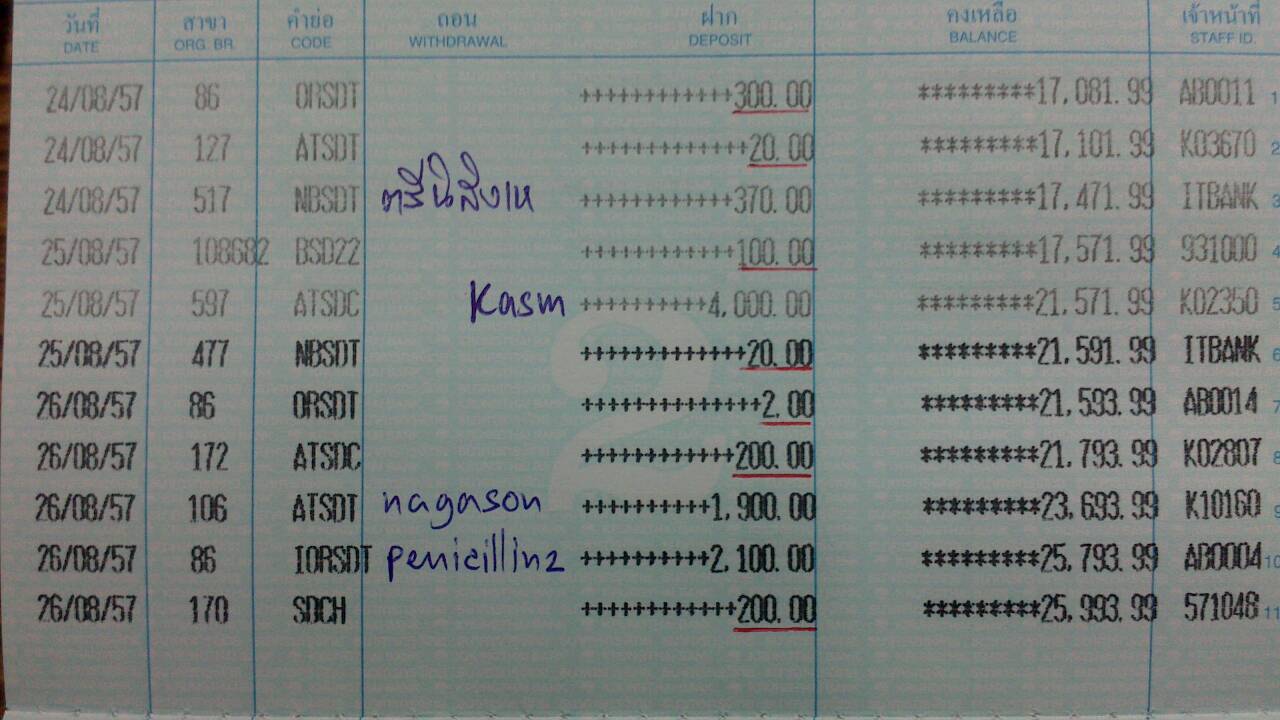 วันที่ สาขา คำย่อ ถอน ฝาก คงเหลือ เจ้าหน้าที่
DATE ORG. BR. CODE WITHDRAWAL DEPOSIT BALANCE STAFF ID.
24/08/57 86 ORSDT ++++++++++++300.00 *********17,081.99 AB0011 1
24/08/57 127 ATSDT +++++++++++++20.00 *********17,101.99 K03670 2
24/08/57 517 NBSDT ++++++++++++370.00 *********17,471.99 ITBANK 3
25/08/57 108682 BSD22 ++++++++++++100.00 *********17,571.99 931000 4
25/08/57 597 ATSDC Kasm ++++++++++4,000.00 *********21,571.99 K02350 5
25/08/57 477 NBSDT +++++++++++++20.00 *********21,591.99 ITBANK 6
26/08/57 86 ORSDT ++++++++++++++2.00 *********21,593.99 AB0014 7
26/08/57 172 ATSDC ++++++++++++200.00 *********21,793.99 K02807 8
26/08/57 106 ATSDT nagason ++++++++++1,900.00 *********23,693.99 K10160 9
26/08/57 86 IORSDT penicillin2 ++++++++++2,100.00 *********25,793.99 AB0004 10
26/08/57 170 SDCH ++++++++++++200.00 *********25,993.99 571048 11
2